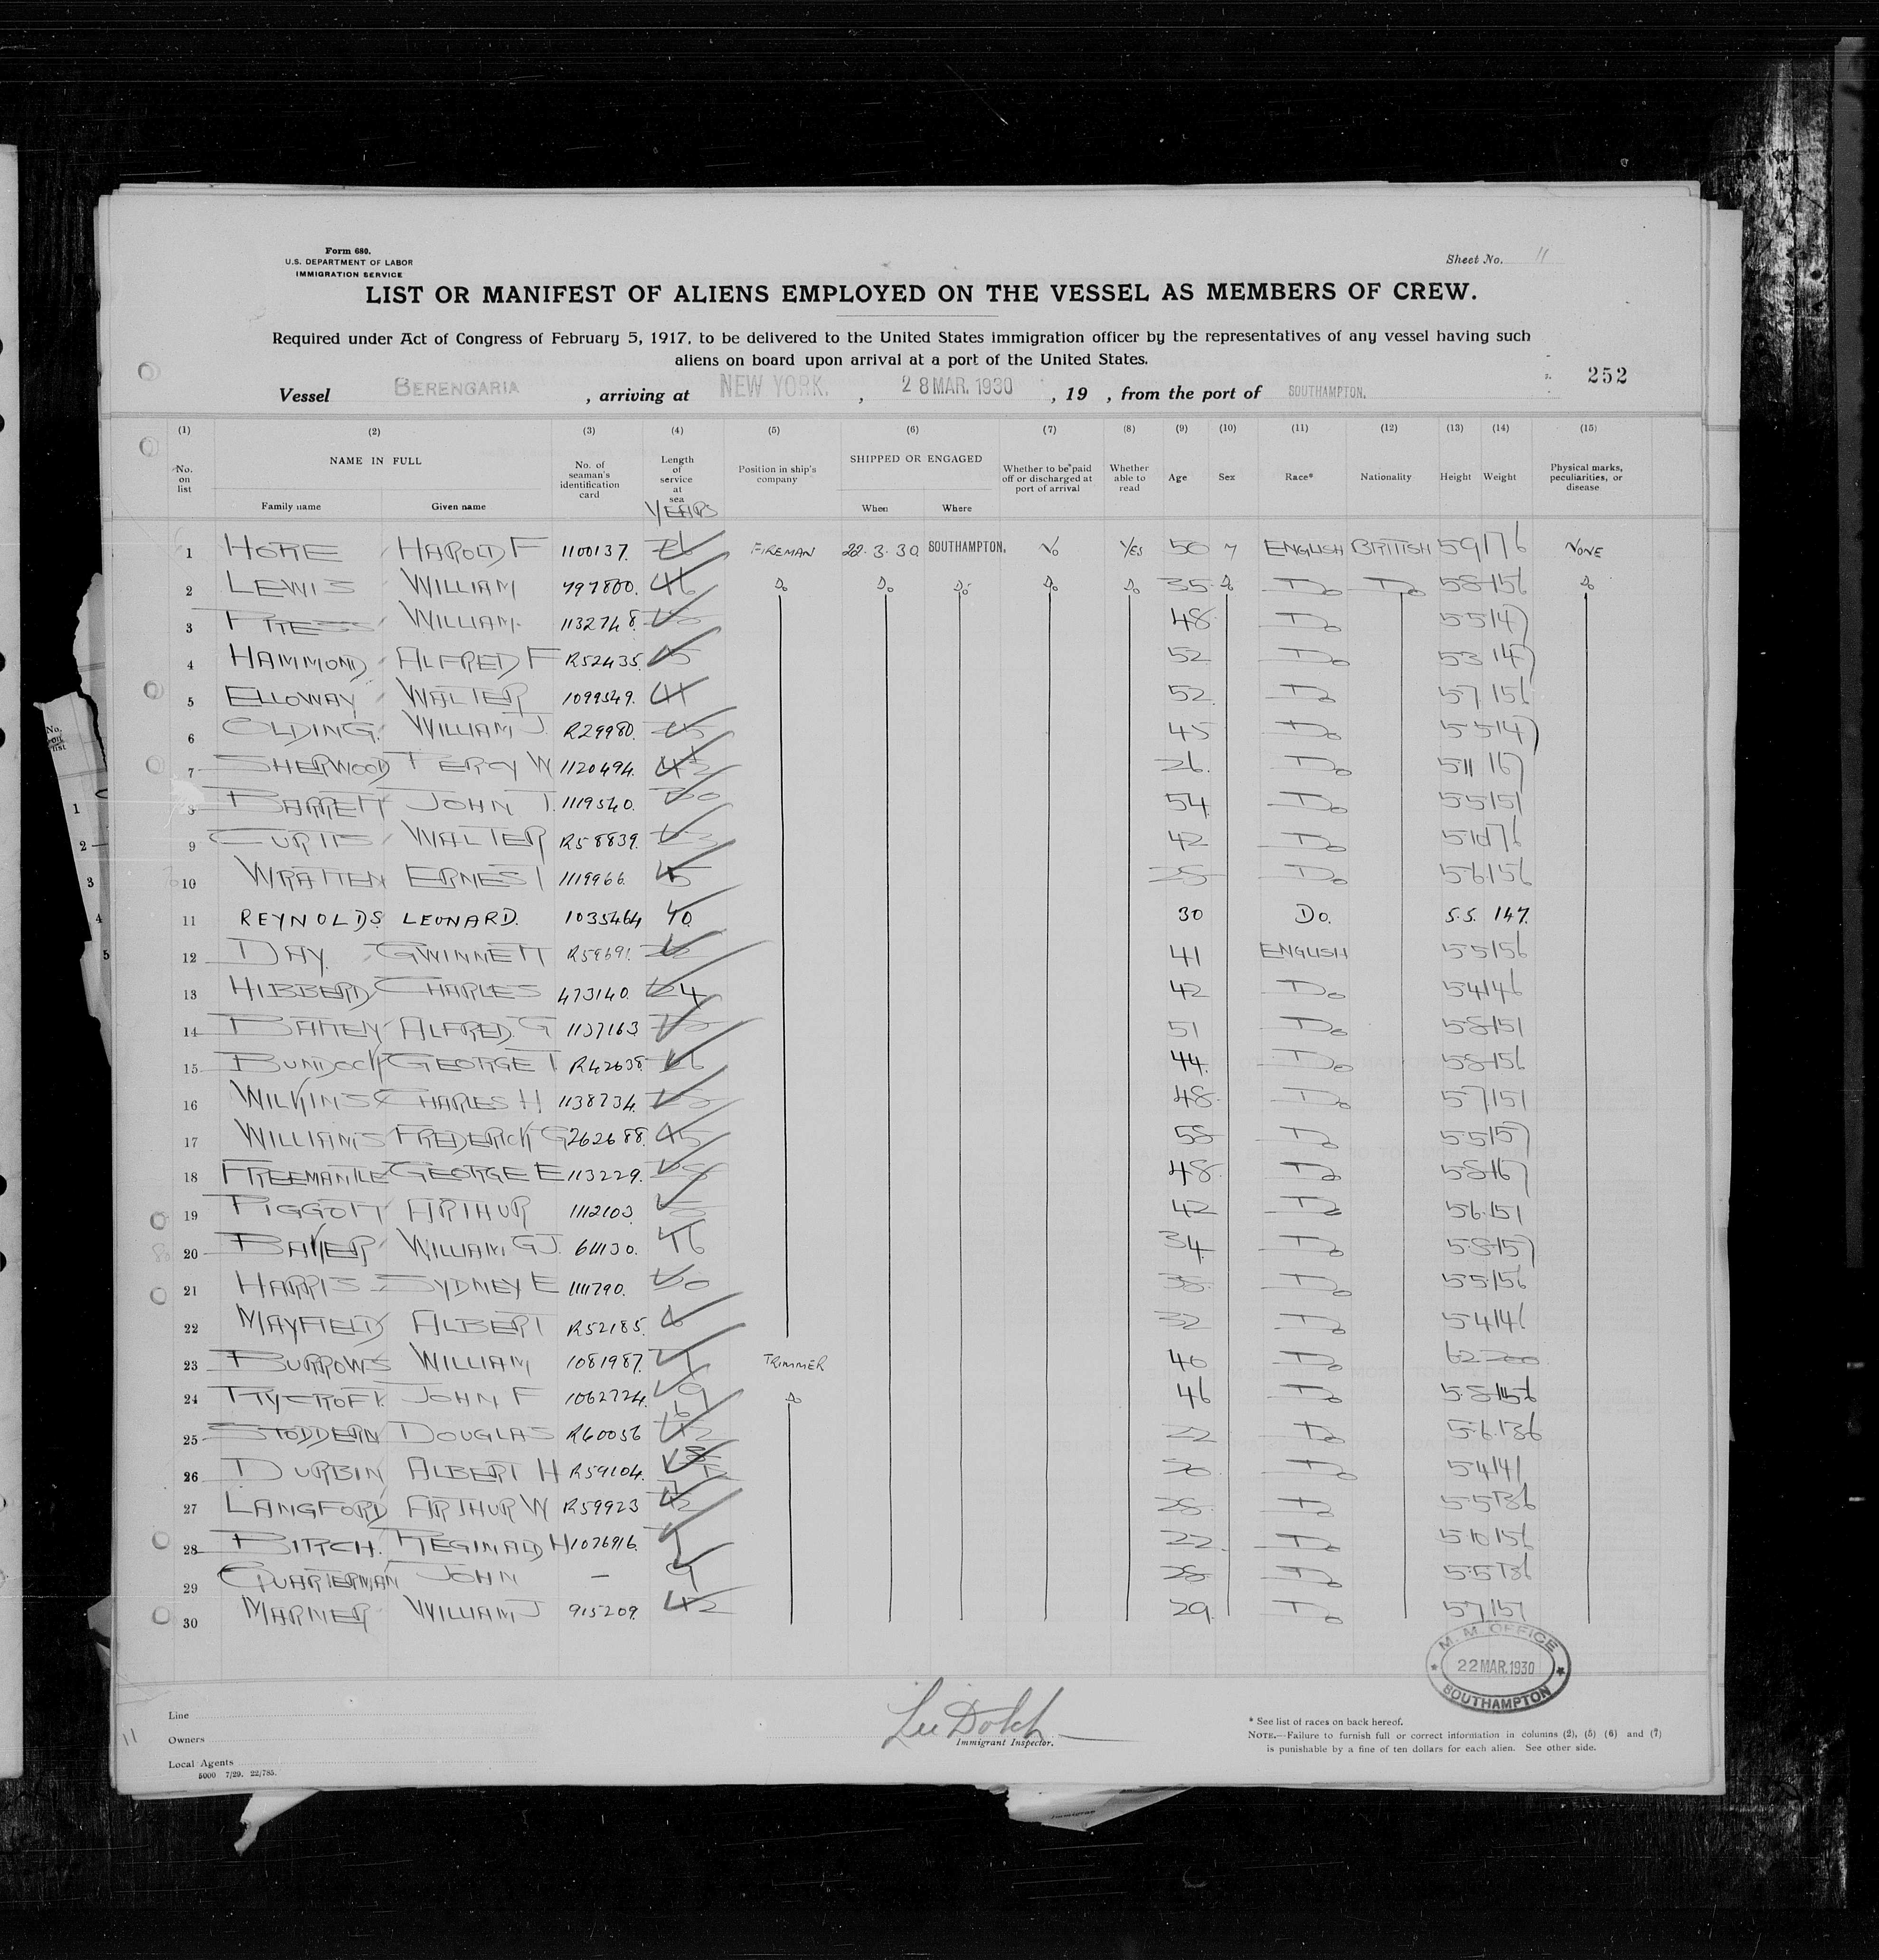 Form 680.
U.S. DEPARTMENT OF LABOR
IMMIGRATION SERVICE
Sheet No. 11
LIST OR MANIFEST OF ALIENS EMPLOYED ON THE VESSEL AS MEMBERS OF CREW.
Required under Act of Congress of February 5, 1917, to be delivered to the United States immigration officer by the representatives of any vessel having such
aliens on board upon arrival at a port of the United States.
252
Vessel BERENGARIA, arriving at NEW YORK., 28 MAR. 1930, 19 , from the port of SOUTHAMPTON.
(1) (2) (3) (4) (5) (6) (7) (8) (9) (10) (11) (12) (13) (14) (15)
No. on list NAME IN FULL Family name Given name No. of seaman's identification card Length of service at sea YEARS Position in ship's company SHIPPED OR ENGAGED When Where Whether to be paid off or discharged at port of arrival Whether able to read Age Sex Race* Nationality Height Weight Physical marks, peculiarities, or disease
1 HORE HAROLD F 1100137. FIREMAN 22.3.30 SOUTHAMPTON. NO YES 50 M ENGLISH BRITISH 59 176 NONE
2 LEWIS WILLIAM 797800. Do Do Do Do Do 35 Do Do Do 58 156 Do
3 WILLIAM. 1132748. 48 Do 55 147
4 HAMMOND ALFRED F R52435. 52 Do 53 147
5 ELLOWAY WALTER 1099549. 52 Do 57 156
6 OLDING. WILLIAM J. R29980. 45 Do 55 147
7 SHERWOOD PERCY W 1120494. 26. Do 511 167
8 BARRETT JOHN T. 1119540. 54 Do 55 151
9 CURTIS WALTER R58839. 42 Do 510 176
10 WRATTEN ERNEST 1119966. 25 Do 56 156
11 REYNOLDS LEONARD. 1035464 10 30 Do. 5.5. 147.
12 DAY. GWINNETT R59691. 41 ENGLISH 55 156
13 HIBBERD CHARLES 473140. 24 42 Do 54 146
14 BATTEN ALFRED. G 1137163 51 Do 58 151
15 BUNDOCK GEORGE T. R42638. 44. Do 58 156
16 WILKINS CHARLES H 1138734. 48. Do 57 151
17 WILLIAMS FREDERICK G 262688. 58 Do 55 157
18 FREEMANTLE GEORGE E 113229. 48. Do 58 167
19 PIGGOTT ARTHUR 1112103 42 Do 56 151
20 BAKER WILLIAM G J. 611130. 16 34 Do 58 157
21 HARRIS SYDNEY E 1111790. 20 38 Do 55 156
22 MAYFIELD ALBERT R52185. 6 32 Do 54 146
23 BURROWS WILLIAM 1081987. TRIMMER 40 Do 62 200
24 RYCROFT. JOHN F 1062724. 9 Do 46 Do 58 156
25 STODDERN DOUGLAS R60056 22 Do 5.6. 136
26 DURBIN ALBERT H R59104. 20 Do 54 141
27 LANGFORD ARTHUR W R59923 28 Do 55 136
28 BIRCH. REGINALD H 1076916. 22 Do 510 156
29 QUARTERMAN JOHN — 9 28 Do 55 136
30 MARNER WILLIAM J 915209. 29. Do 57 157
M. M. OFFICE
22 MAR. 1930
SOUTHAMPTON
Line
Owners
Local Agents
5000 7/29. 22/785.
11
Immigrant Inspector.
* See list of races on back hereof.
NOTE.—Failure to furnish full or correct information in columns (2), (5) (6) and (7)
is punishable by a fine of ten dollars for each alien. See other side.